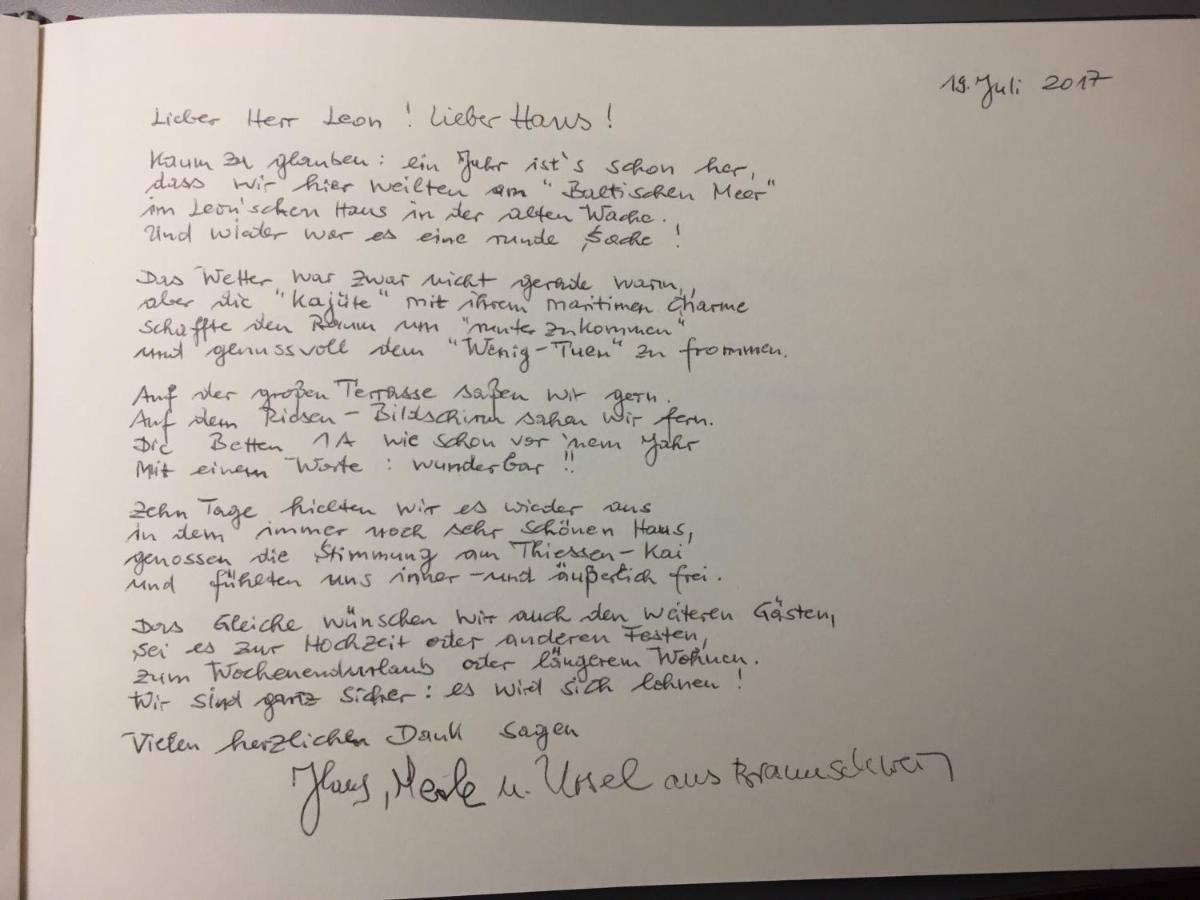 19. Juli 2017
Lieber Herr Leon! Lieber Hans!
Kaum zu glauben: ein Jahr ist's schon her,
dass wir hier weilten am "Baltischen Meer"
im Leon'schen Haus in der alten Wache.
Und wieder war es eine runde Sache!
Das Wetter war zwar nicht gerade warm,
aber die "Kajüte" mit ihrem maritimen Charme
schaffte den Raum um "runterzukommen"
und genussvoll dem "Wenig-Tuen" zu frommen.
Auf der großen Terrasse saßen wir gern.
Auf dem Riesen-Bildschirm sahen wir fern.
Die Betten 1A wie schon vor 'nem Jahr
Mit einem Worte: wunderbar!!
Zehn Tage hielten wir es wieder aus
in dem immer noch sehr schönen Haus,
genossen die Stimmung am Thiessen-Kai
und fühlten uns inner- und äußerlich frei.
Das Gleiche wünschen wir auch den weiteren Gästen,
sei es zur Hochzeit oder anderen Festen,
zum Wochenendurlaub oder längerem Wohnen.
Wir sind ganz sicher: es wird sich lohnen!
Vielen herzlichen Dank sagen
u. Ursel aus Braunschweig